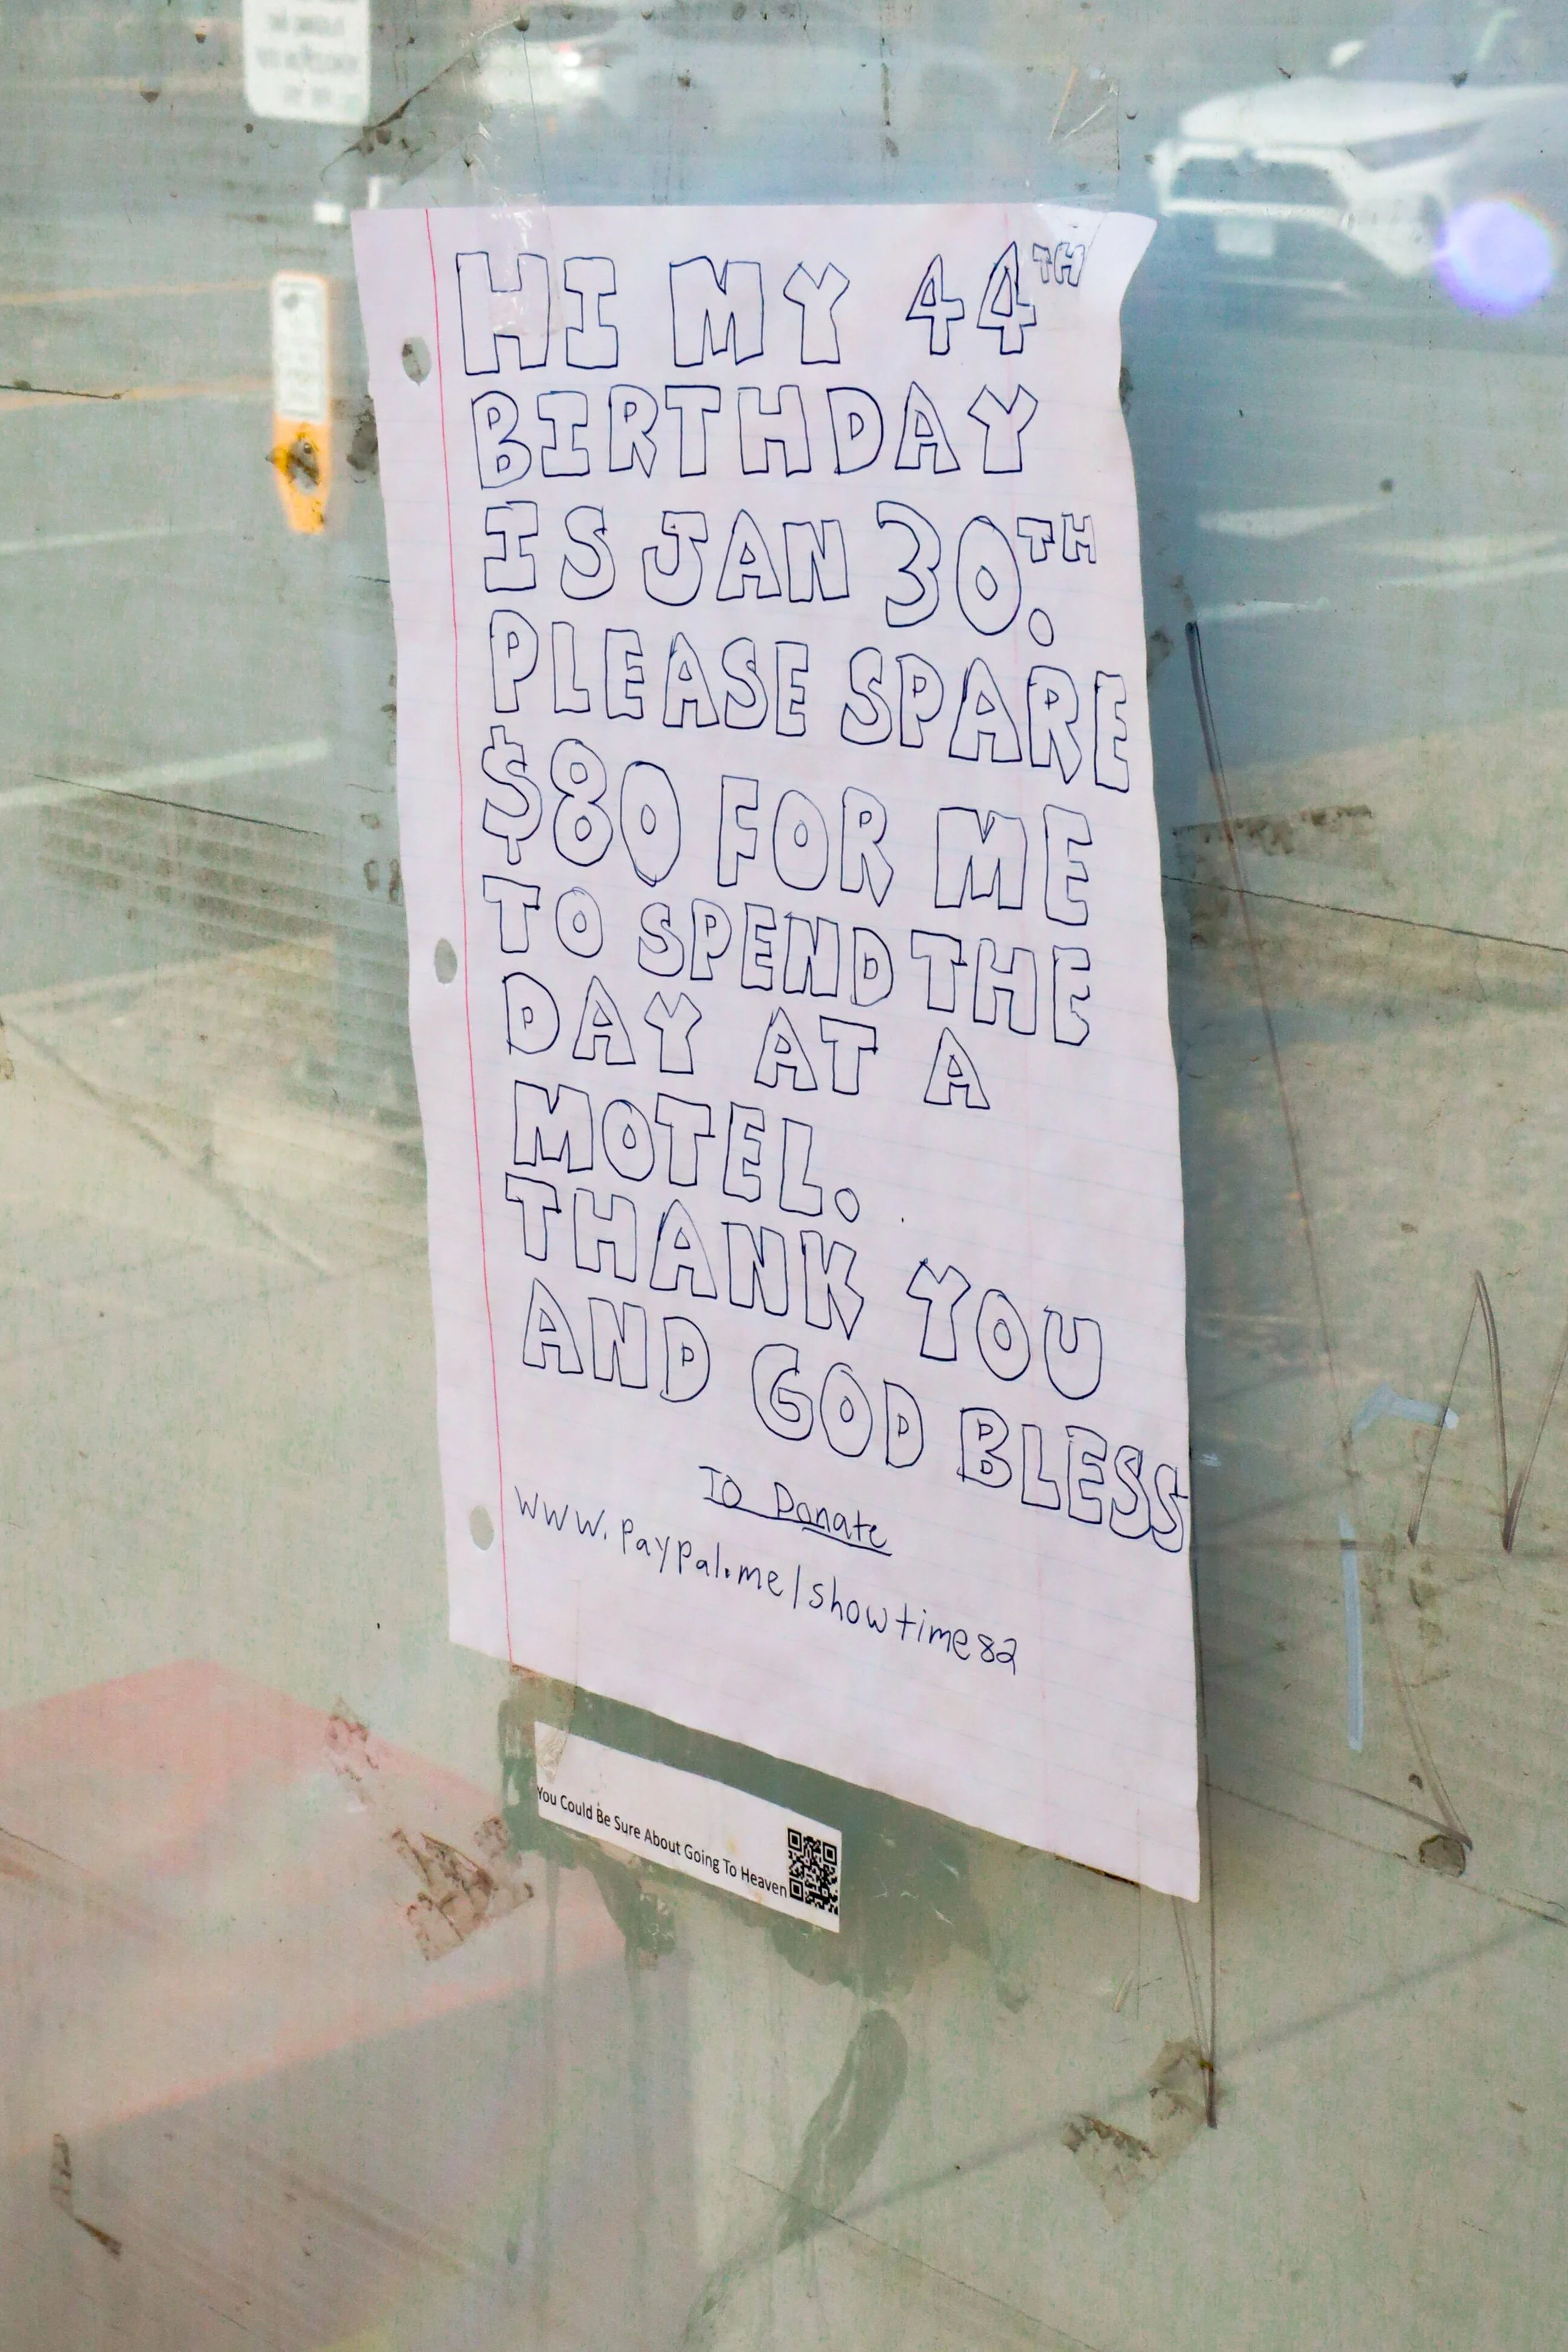 HI MY 44TH
BIRTHDAY
IS JAN 30TH.
PLEASE SPARE
$80 FOR ME
TO SPEND THE
DAY AT A
MOTEL.
THANK YOU
AND GOD BLESS
To Donate
www.paypal.me/showtime82
You Could Be Sure About Going To Heaven